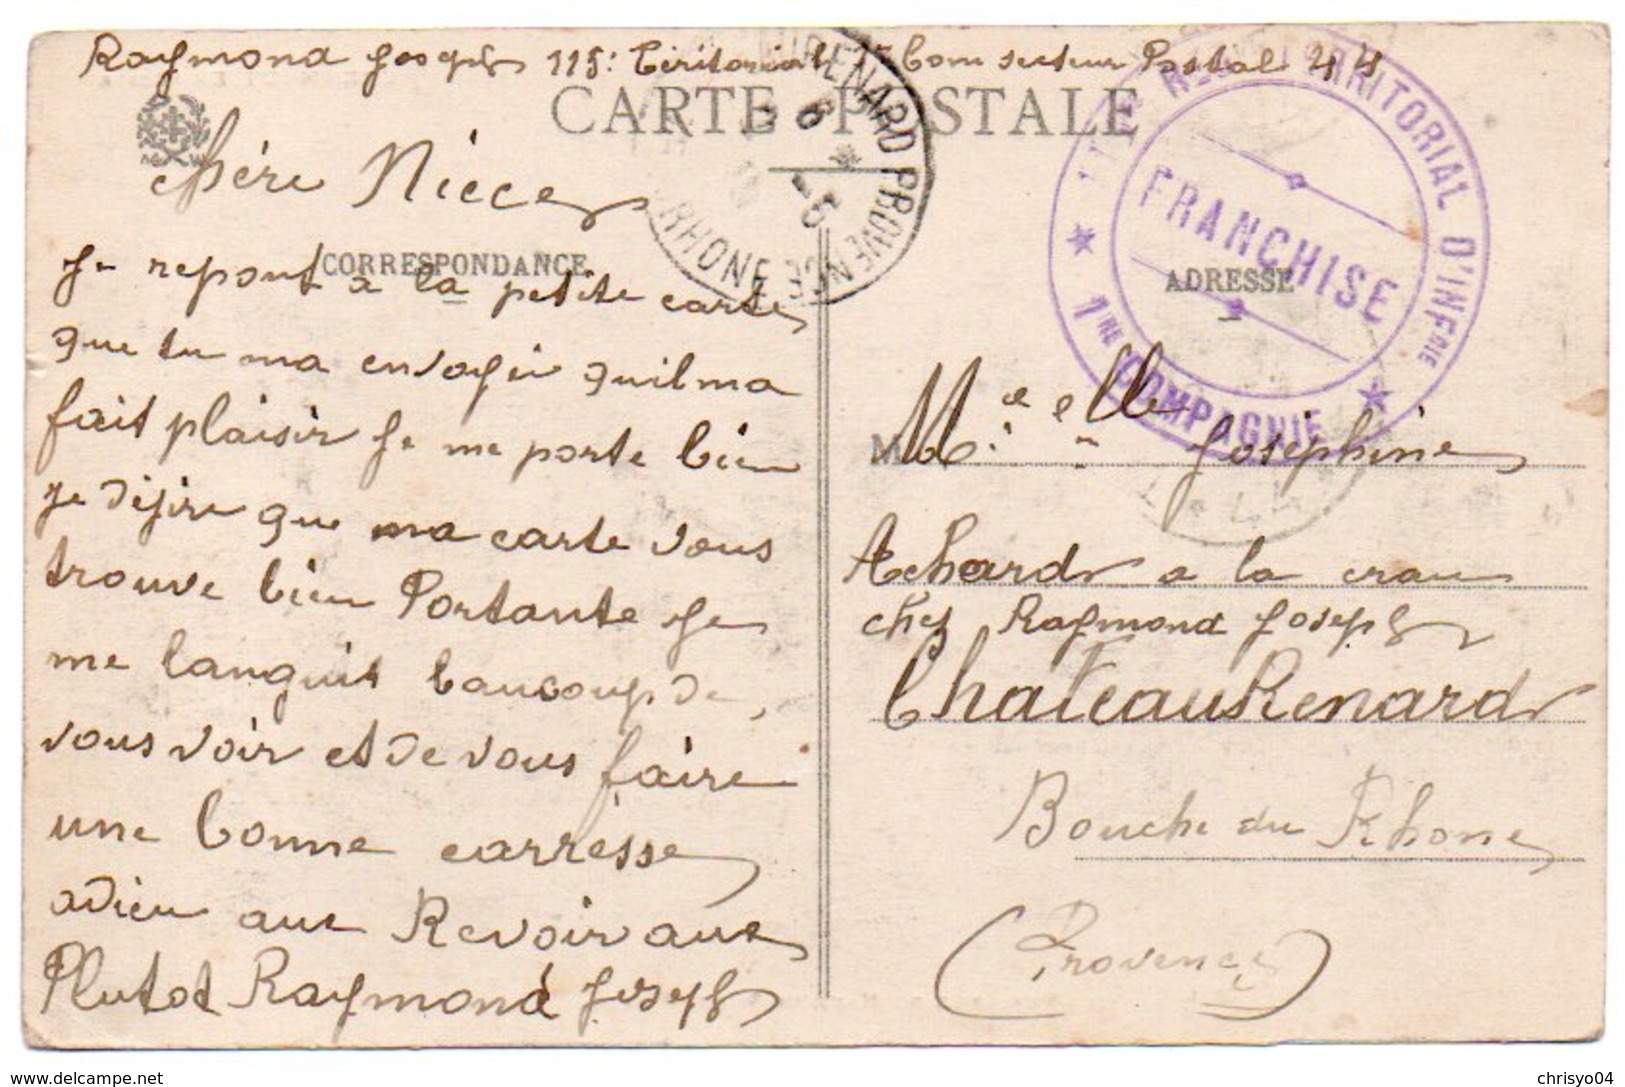 Raymond Joseph 115: Teritorial 1e Com secteur Postal 44
CARTE POSTALE
CHATEAURENARD PROVENCE
RHONE
115E REGT TERRITORIAL D'INFRIE
FRANCHISE
1RE COMPAGNIE
chère Nièce
CORRESPONDANCE
Je repont à la petite carte
que tu ma envoyer quil ma
fait plaisir Je me porte bien
Je désire que ma carte vous
trouve bien Portante Je
me languit baucoup de,
vous voir et de vous faire
une bonne carresse
adieu aue Revoir aue
Plutot Raymond Joseph
ADRESSE
M elle Josephine
Achard a la crau
chez Raymond Joseph
ChateauRenard
Bouche du Rhone
(Provence)
www.delcampe.net
chrisyo04